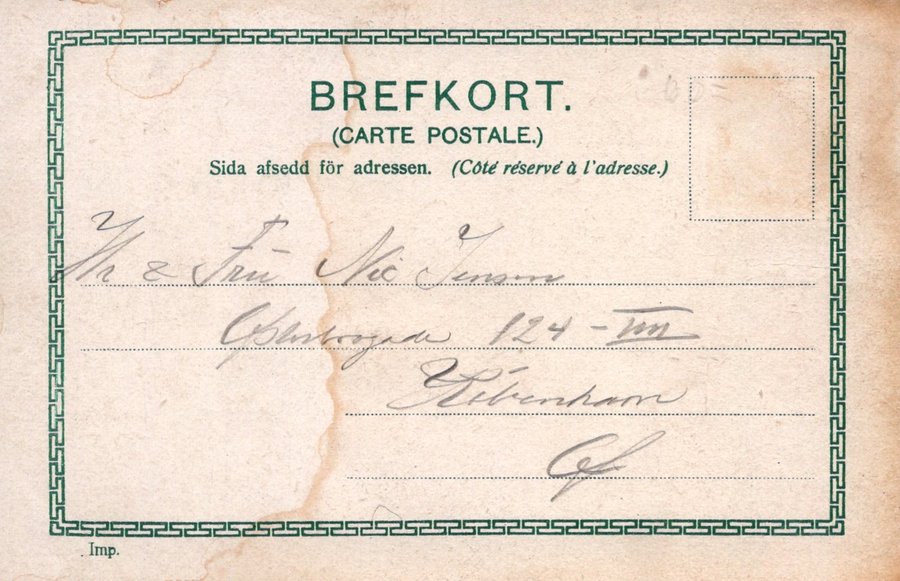 BREFKORT.
(CARTE POSTALE.)
Sida afsedd för adressen. (Côté réservé à l'adresse.)
Hr & Frü Nic Jenson
Østerbrogade 124 - IIII
København
Ø
Imp.